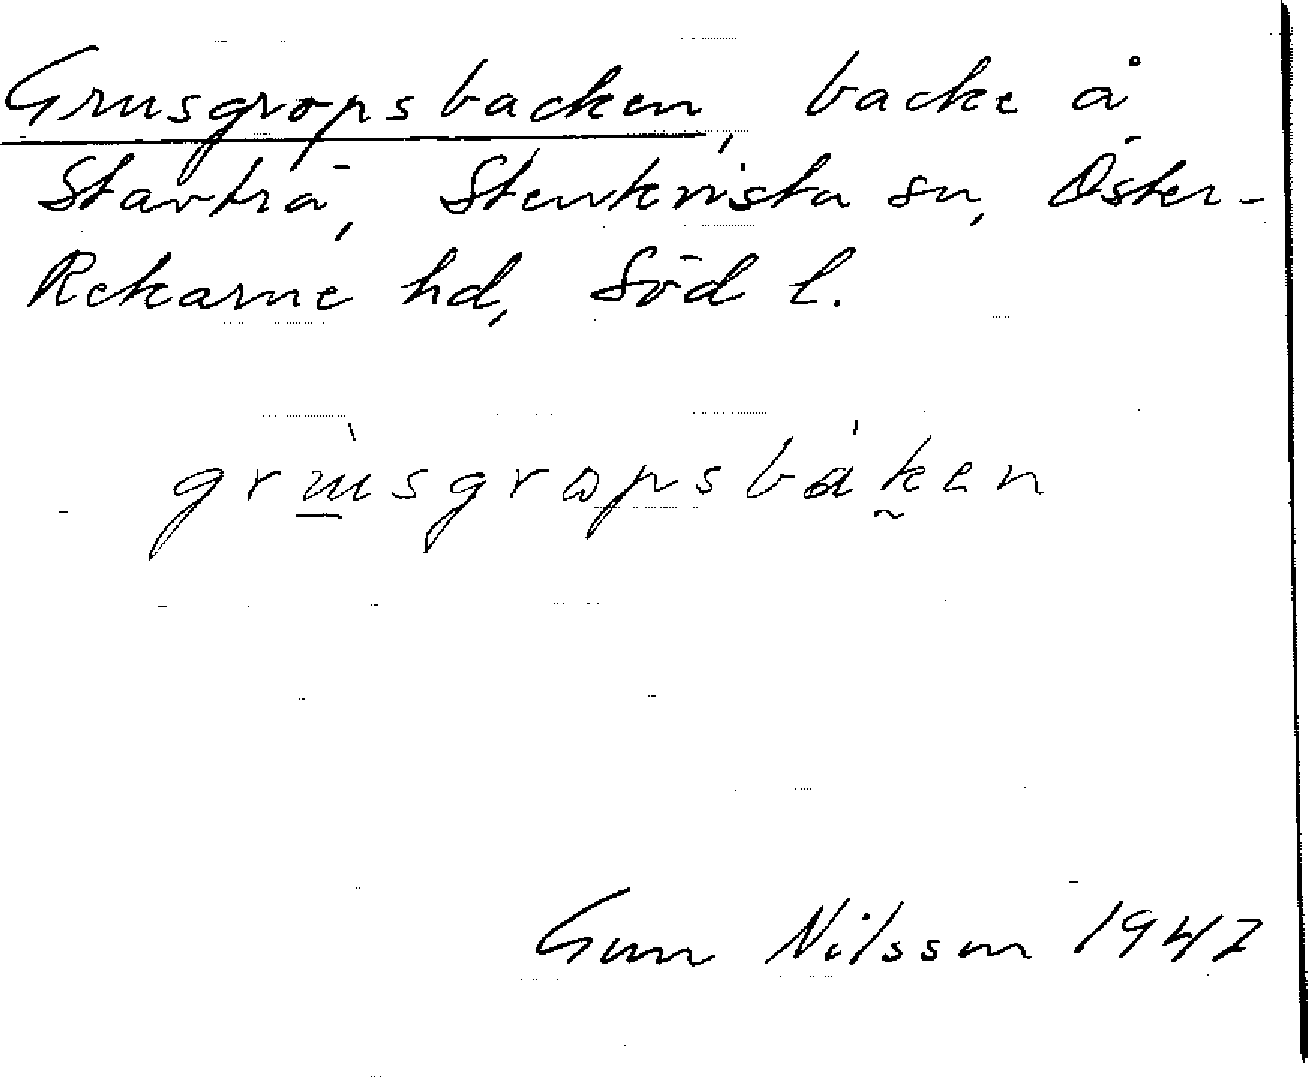 Grusgropsbacken, backe å
Stavträ, Stenkvista sn, Öster-
Rekarne hd, Söd l.
grùsgropsbáken
Gun Nilsson 1947